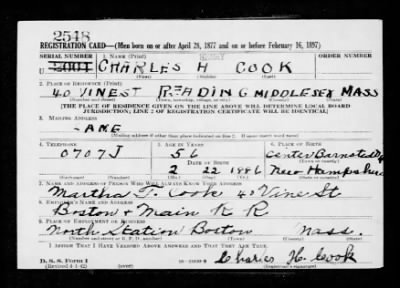 2548
REGISTRATION CARD—(Men born on or after April 28, 1877 and on or before February 16, 1897)
SERIAL NUMBER 1. NAME (Print) ORDER NUMBER
U 2001 CHARLES H COOK
(First) (Middle) (Last)
2. PLACE OF RESIDENCE (Print)
40 VINE ST READING MIDDLESEX MASS
(Number and street) (Town, township, village, or city) (County) (State)
[THE PLACE OF RESIDENCE GIVEN ON THE LINE ABOVE WILL DETERMINE LOCAL BOARD
JURISDICTION; LINE 2 OF REGISTRATION CERTIFICATE WILL BE IDENTICAL]
3. MAILING ADDRESS
SAME
[Mailing address if other than place indicated on line 2. If same insert word same]
4. TELEPHONE 5. AGE IN YEARS 6. PLACE OF BIRTH
0707J 56 Center Barnstead
DATE OF BIRTH (Town or county)
2 22 1886 New Hampshire
(Mo.) (Day) (Yr.) (State or country)
7. NAME AND ADDRESS OF PERSON WHO WILL ALWAYS KNOW YOUR ADDRESS
Martha F. Cook 40 Vine St.
8. EMPLOYER'S NAME AND ADDRESS
Boston & Main R R
9. PLACE OF EMPLOYMENT OR BUSINESS
North Station Boston Mass.
(Number and street or R. F. D. number) (Town) (County) (State)
I AFFIRM THAT I HAVE VERIFIED ABOVE ANSWERS AND THAT THEY ARE TRUE.
D. S. S. Form 1
(Revised 4-1-42) Charles H. Cook